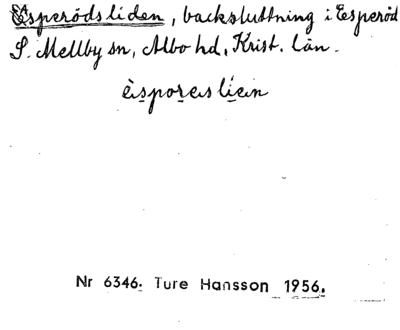 Esperödsliden, backsluttning i Esperöd
S. Mellby sn, Albo hd, Krist. län.
èsporeislíein
Nr 6346. Ture Hansson 1956.